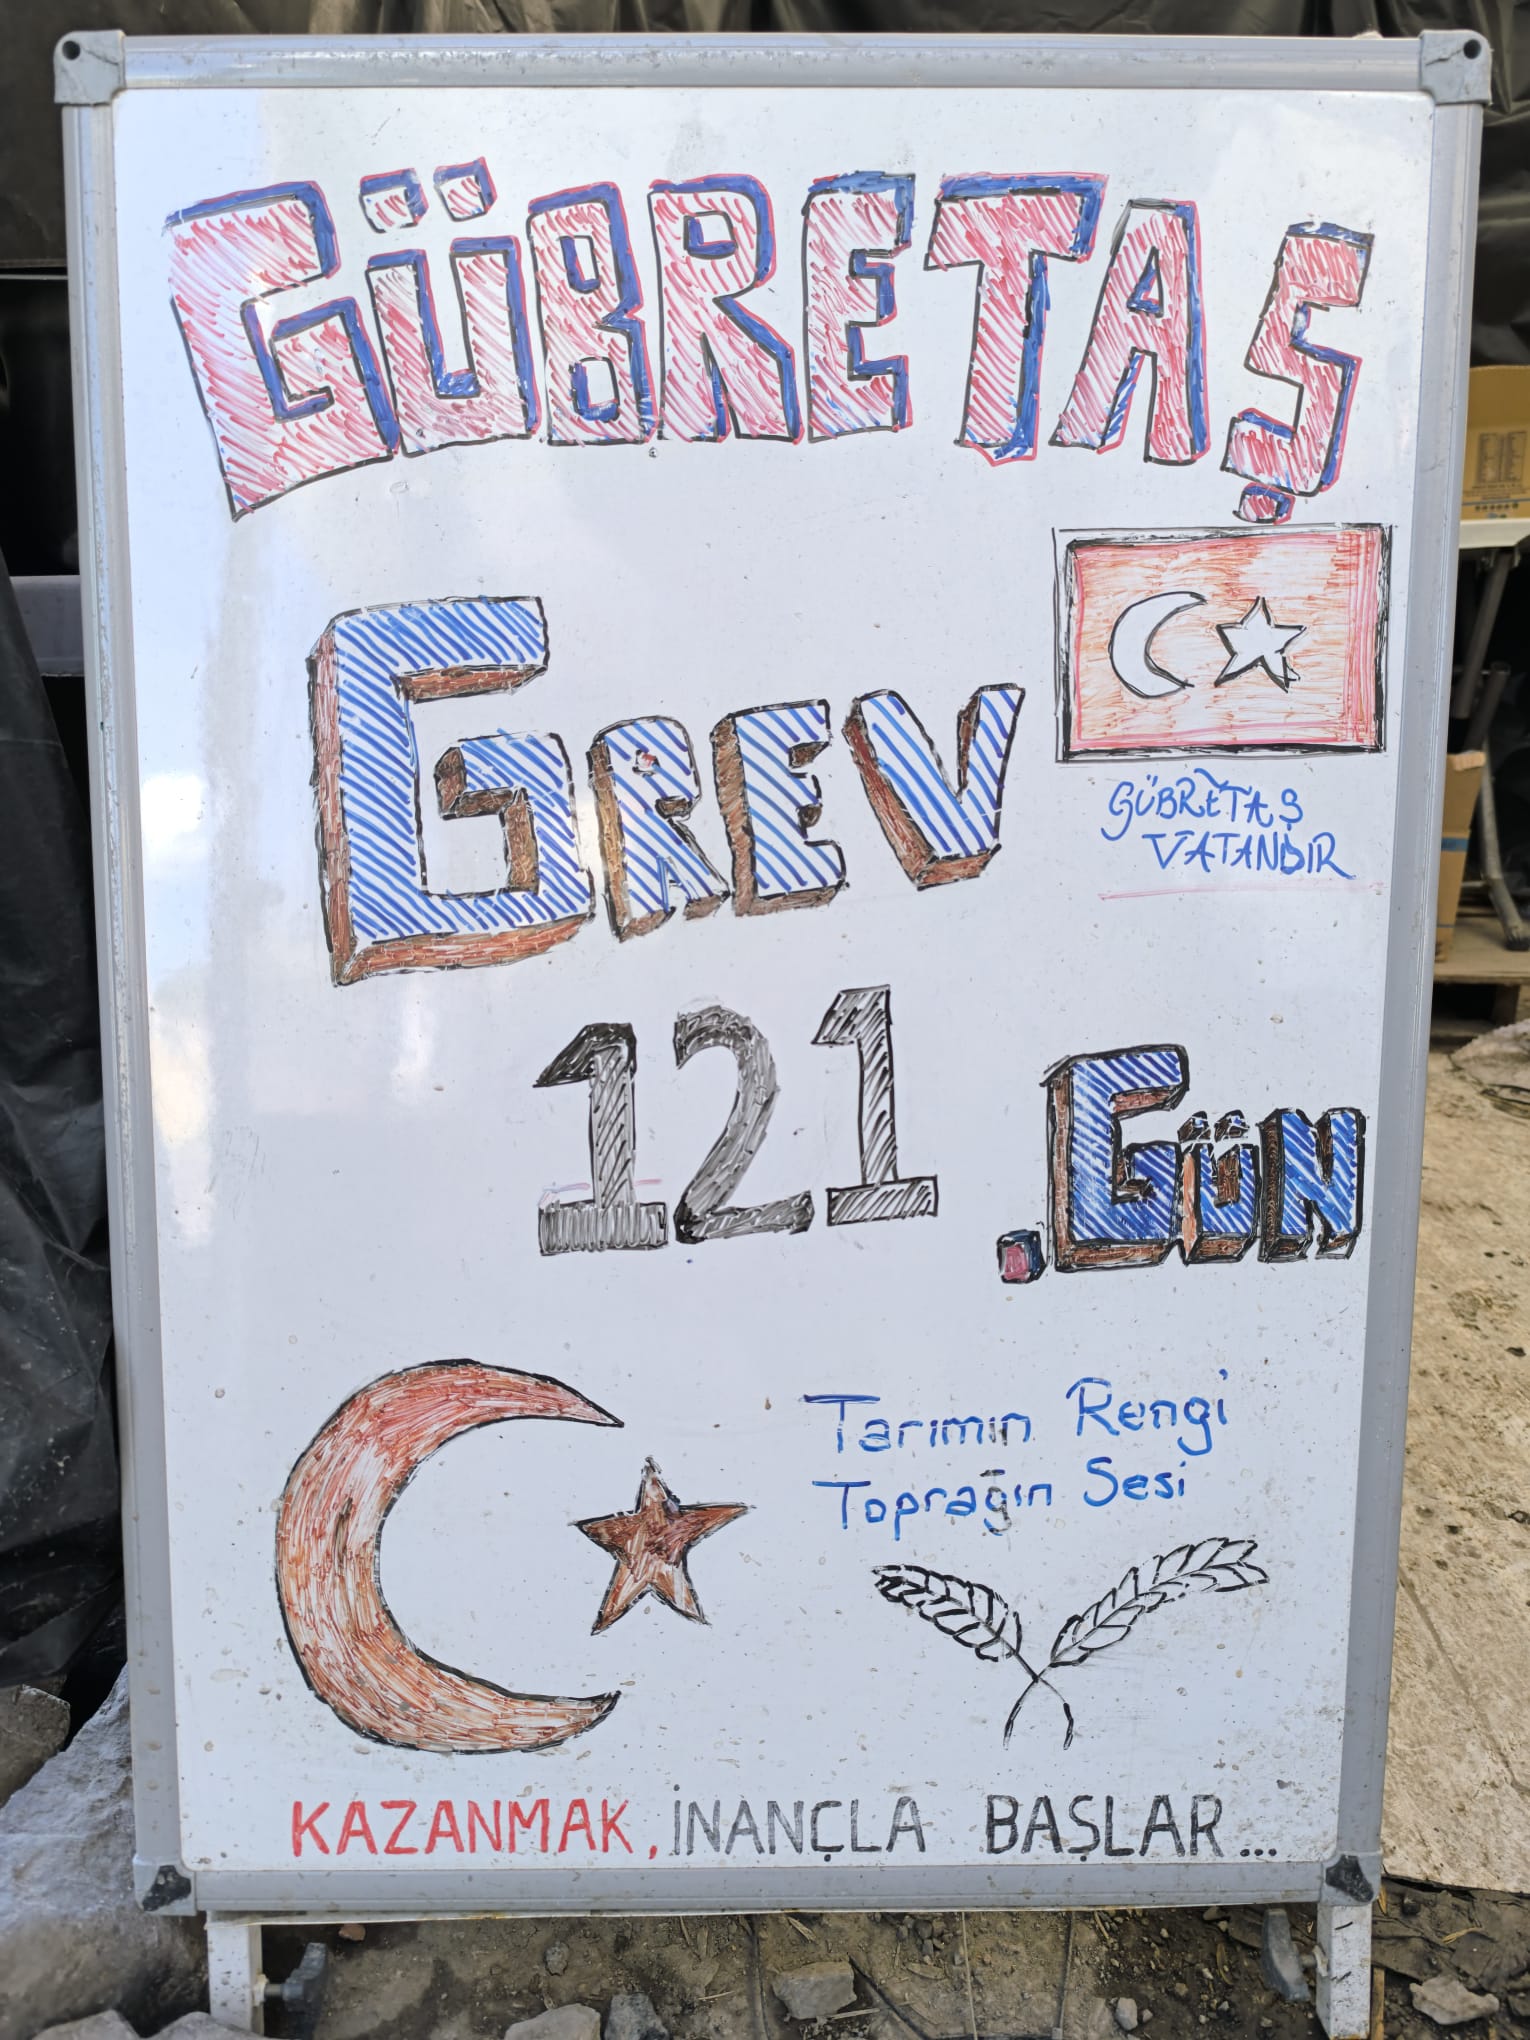 GÜBRETAŞ
GREV
GÜBRETAŞ
VATANDIR
121
.GÜN
Tarımın Rengi
Toprağın Sesi
KAZANMAK, İNANÇLA BAŞLAR...